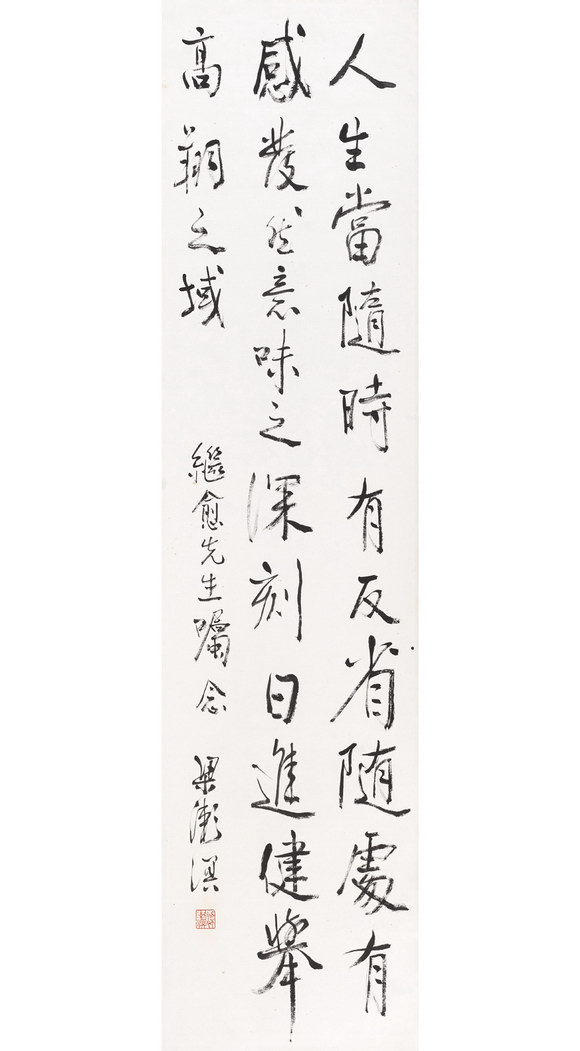 人生當隨時有反省隨處有
感發然意味之深刻日進健舉
高翔之域
繼愈先生囑念 梁漱溟